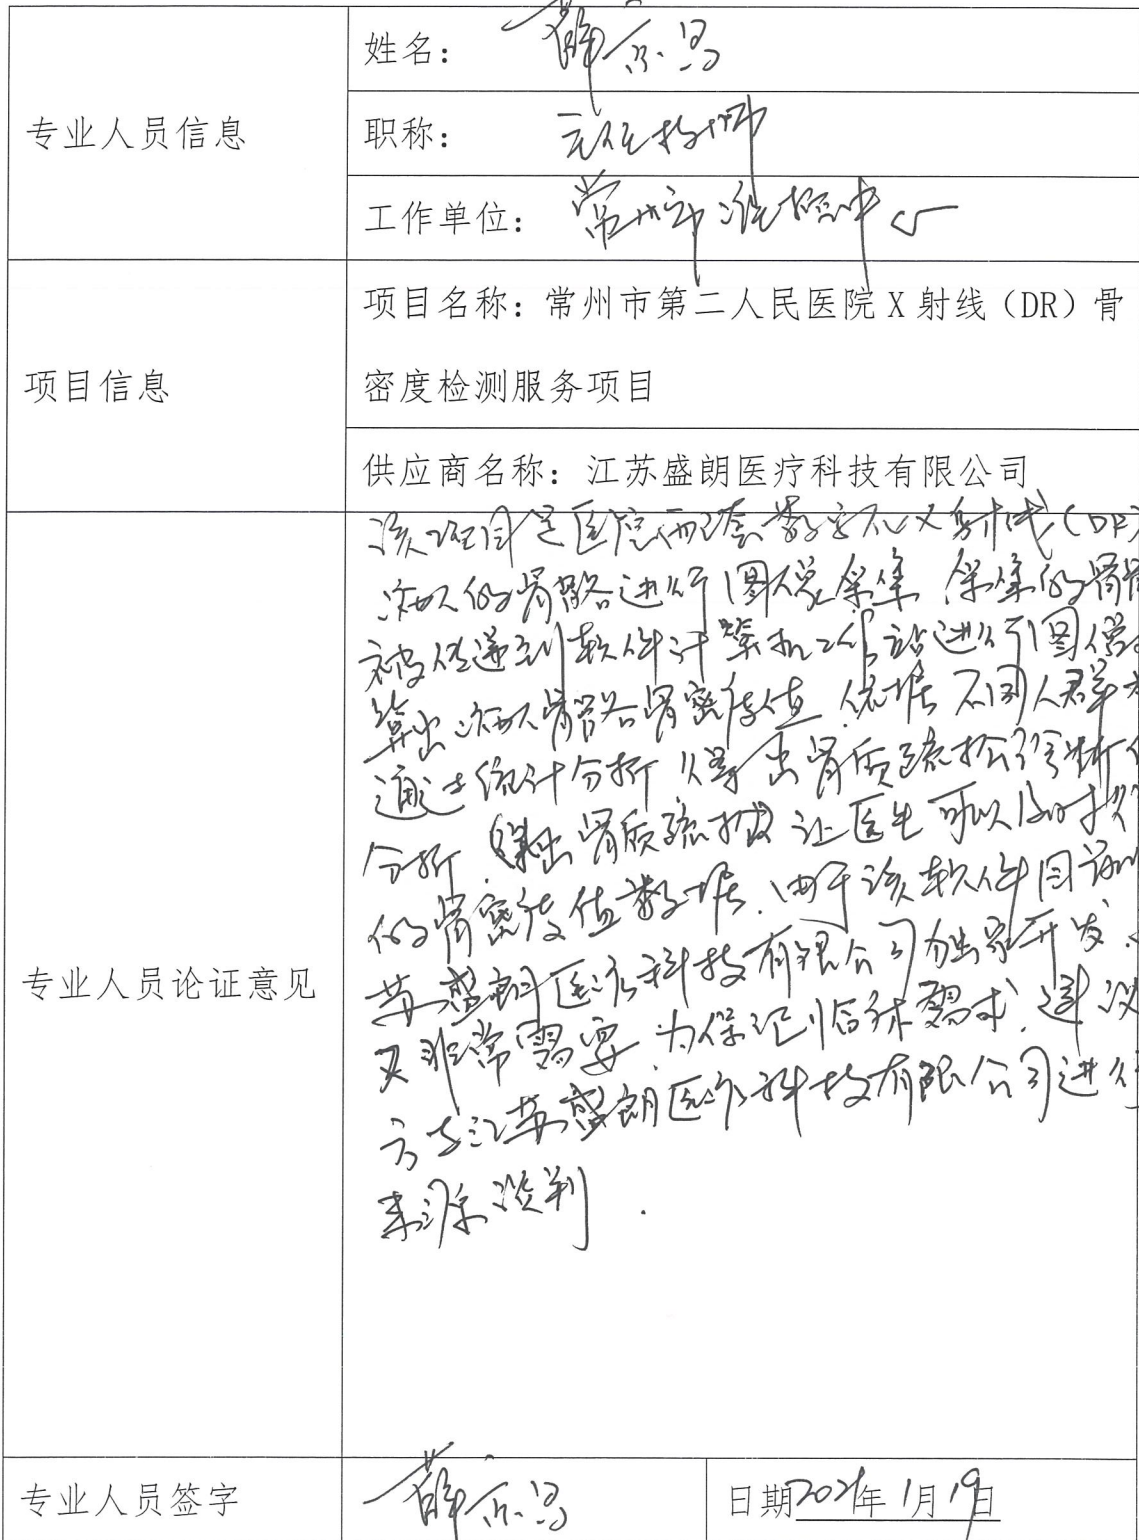 姓名：薛
专业人员信息
职称：主任技师
工作单位：常州市 中心
项目信息
项目名称：常州市第二人民医院 X 射线（DR）骨
密度检测服务项目
供应商名称：江苏盛朗医疗科技有限公司
专业人员论证意见
该项目是医院 套数字化X射线（DR）
病人的骨骼进行图像采集.采集的骨骼
被传递到软件计算机工作站进行图像
算出病人骨骼骨密度值.依据不同人群
通过统计分析得出骨质疏松诊断
分析. 出骨质疏松 让医生可以及时
的骨密度值数据.由于该软件目前
苏盛朗医疗科技有限公司独家开发.
又非常需要.为保证临床需求.建议
方与江苏盛朗医疗科技有限公司进行
来源谈判.
专业人员签字 薛
日期2021年1月19日